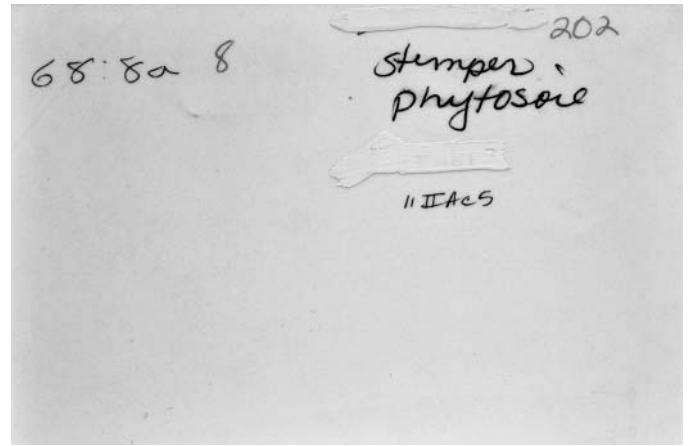 202
68:8a 8
stemper.
phytosoie
11 IIAc5